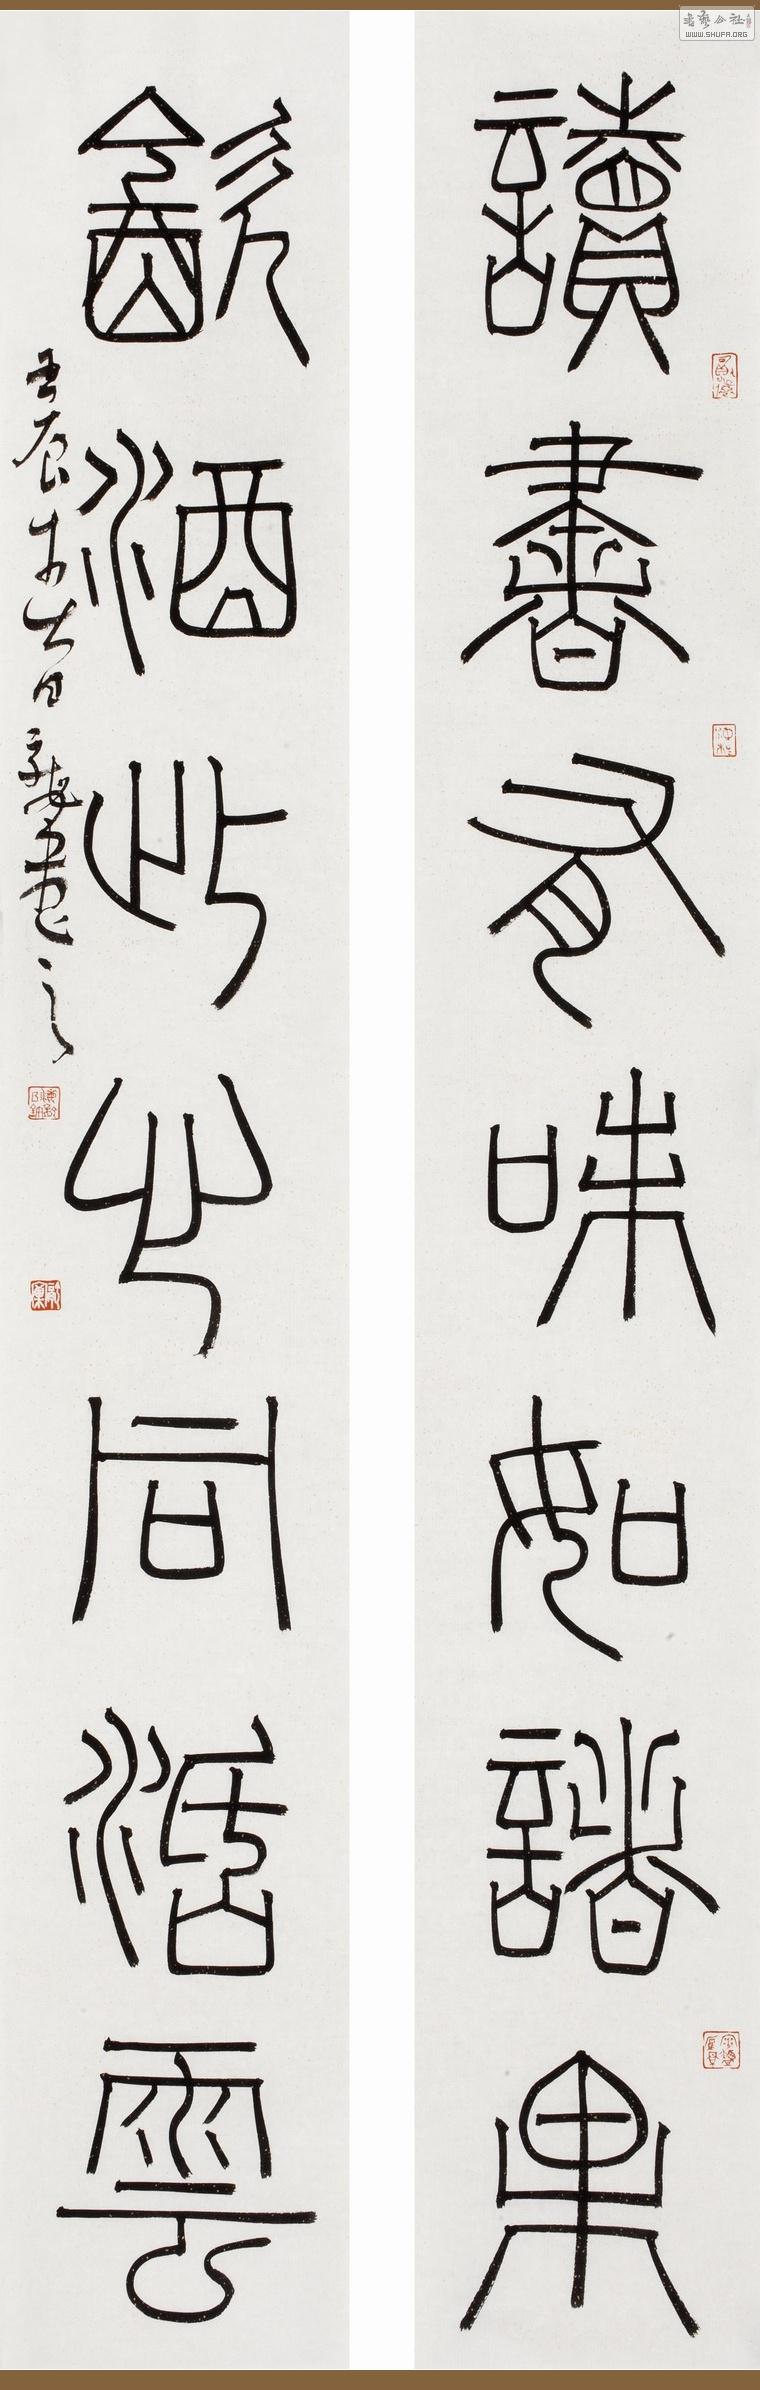 書藝公社
WWW.SHUFA.ORG
讀書有味如諸果
飲酒此心同活雲
壬辰吉日